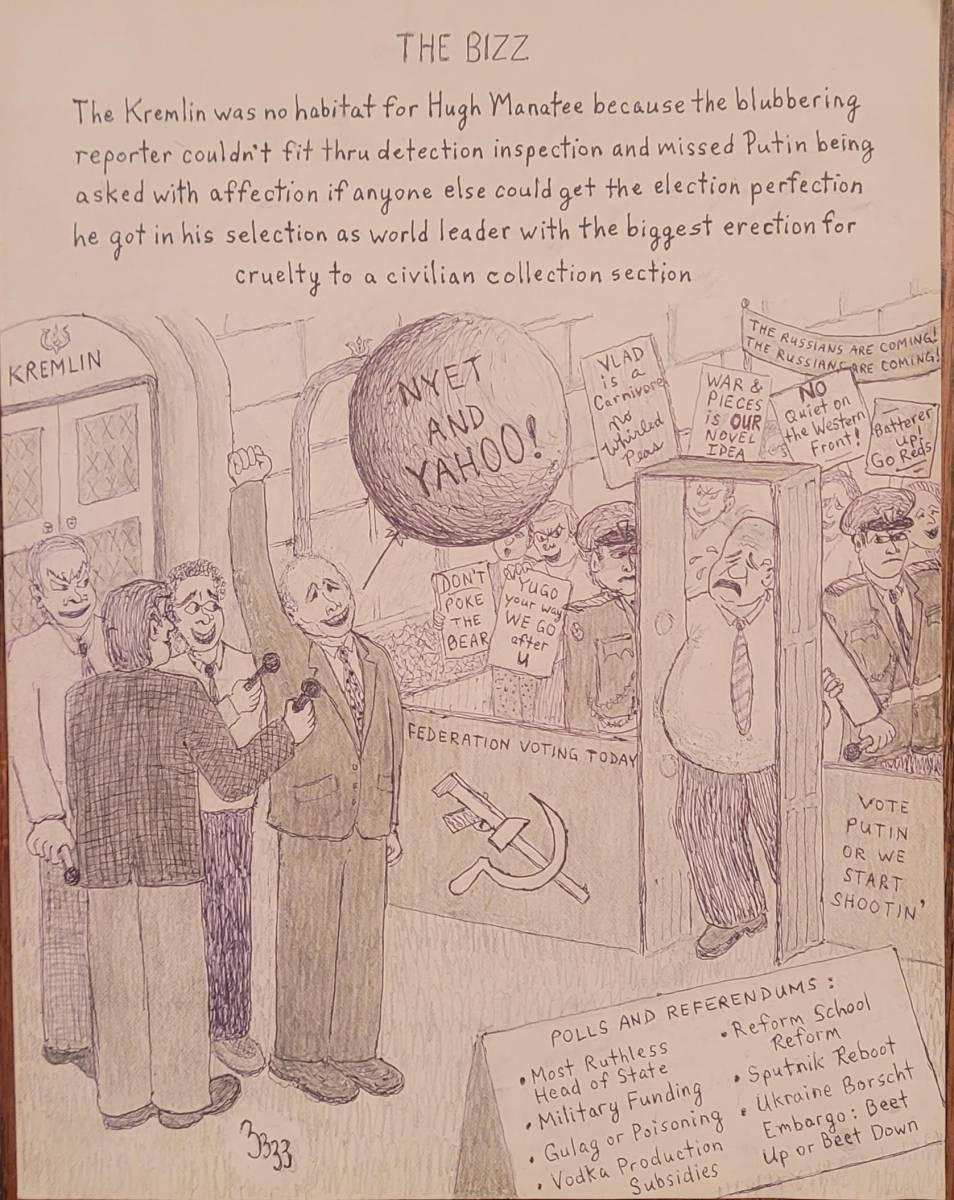 THE BIZZ
The Kremlin was no habitat for Hugh Manatee because the blubbering
reporter couldn't fit thru detection inspection and missed Putin being
asked with affection if anyone else could get the election perfection
he got in his selection as world leader with the biggest erection for
cruelty to a civilian collection section
KREMLIN
NYET
AND
YAHOO!
VLAD
is a
Carnivore
no
Whirled
Peas
WAR &
PIECES
is OUR
NOVEL
IDEA
THE RUSSIANS ARE COMING!
THE RUSSIANS ARE COMING!
NO
Quiet on
the Western
Front!
Batterer
up!
Go Reds
DON'T
POKE
THE
BEAR
YUGO
your way
WE GO
after
U
FEDERATION VOTING TODAY
VOTE
PUTIN
OR WE
START
SHOOTIN'
POLLS AND REFERENDUMS:
• Most Ruthless
Head of State
• Military Funding
• Gulag or Poisoning
• Vodka Production
Subsidies
• Reform School
Reform
• Sputnik Reboot
• Ukraine Borscht
Embargo: Beet
Up or Beet Down
3333